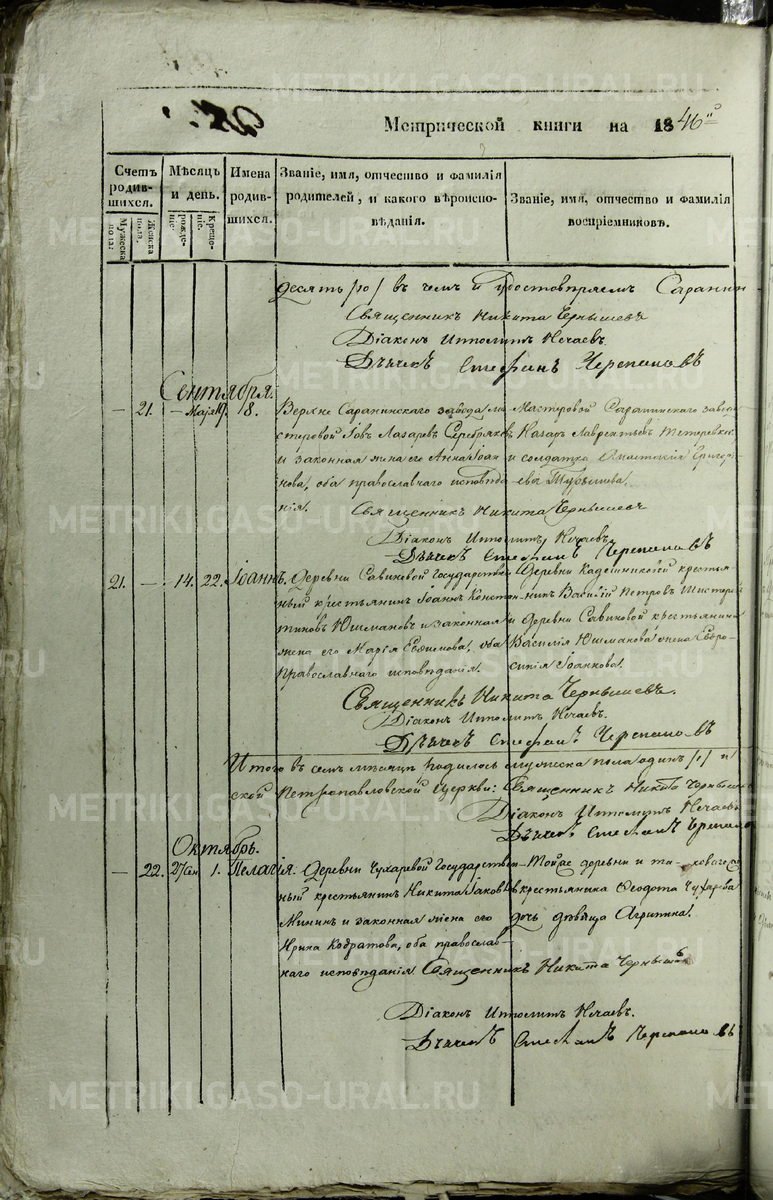 METRIKI.GASO-URAL.RU
Метрической книги на 1846й
Счетъ родив-шихся.
Мужеска пола.
Женска пола.
Мѣсяцъ и день.
рожде-ніе.
Креще-ніе.
Имена родив-шихся.
Званіе, имя, отчество и фамилія родителей, и какого вѣроиспо-вѣданія.
Званіе, имя, отчество и фамилія воспріемниковъ.
десять /10/ въ чемъ и удостовѣряемъ Саранин-
Священникъ Никита Чернышевъ
Діаконъ Ипполитъ Нечаевъ
Дьячекъ Стефанъ Черепановъ
Сентября.
— 21. 8. Верхне Саранинскаго завода ма-
стеровой Іовъ Лазаревъ Серебряковъ
и законная жена его Анна Іоан-
нова, оба православнаго исповѣда-
нія.
Мастеровой Саранинскаго завода
Назаръ Лаврентьевъ
и солдатка Анастасія Григорь-
ева
Священникъ Никита Чернышевъ
Діаконъ Ипполитъ Нечаевъ
Дьячекъ Стефанъ Черепановъ
21. — 14. 22. Іоаннъ. Деревни Савиновой Государствен-
ный крестьянинъ Іоаннъ Констан-
тиновъ Юшмановъ и законная
жена его Марія Евфимова, оба
Православнаго исповѣданія.
Деревни крестья-
нинъ Василій Петровъ
и деревни Савиновой крестьянина
Василія Юшманова жена Евфро-
синія Іоаннова.
Священникъ Никита Чернышевъ.
Діаконъ Ипполитъ Нечаевъ.
Дьячекъ Стефанъ Черепановъ
Итого въ семъ мѣсяцѣ родилось мужеска пола одинъ /1/ и
ской Петропавловской Церкви: Священникъ Никита Чернышевъ
Діаконъ Ипполитъ Нечаевъ
Дьячекъ Стефанъ Черепано
Октябрь.
— 22. 27 Сен 1. Пелагія. Деревни Чухаревой Государствен-
ный крестьянинъ Никита Іаковлевъ
Мининъ и законная жена его
Ирина Кодратова, оба православ-
наго исповѣданія
Той же деревни и та-коваго же
крестьянина Ѳеодота Чухарева
дочь дѣвица Агрипина.
Священникъ Никита Чернышевъ
Діаконъ Ипполитъ Нечаевъ.
Дьячекъ Стефанъ Черепановъ